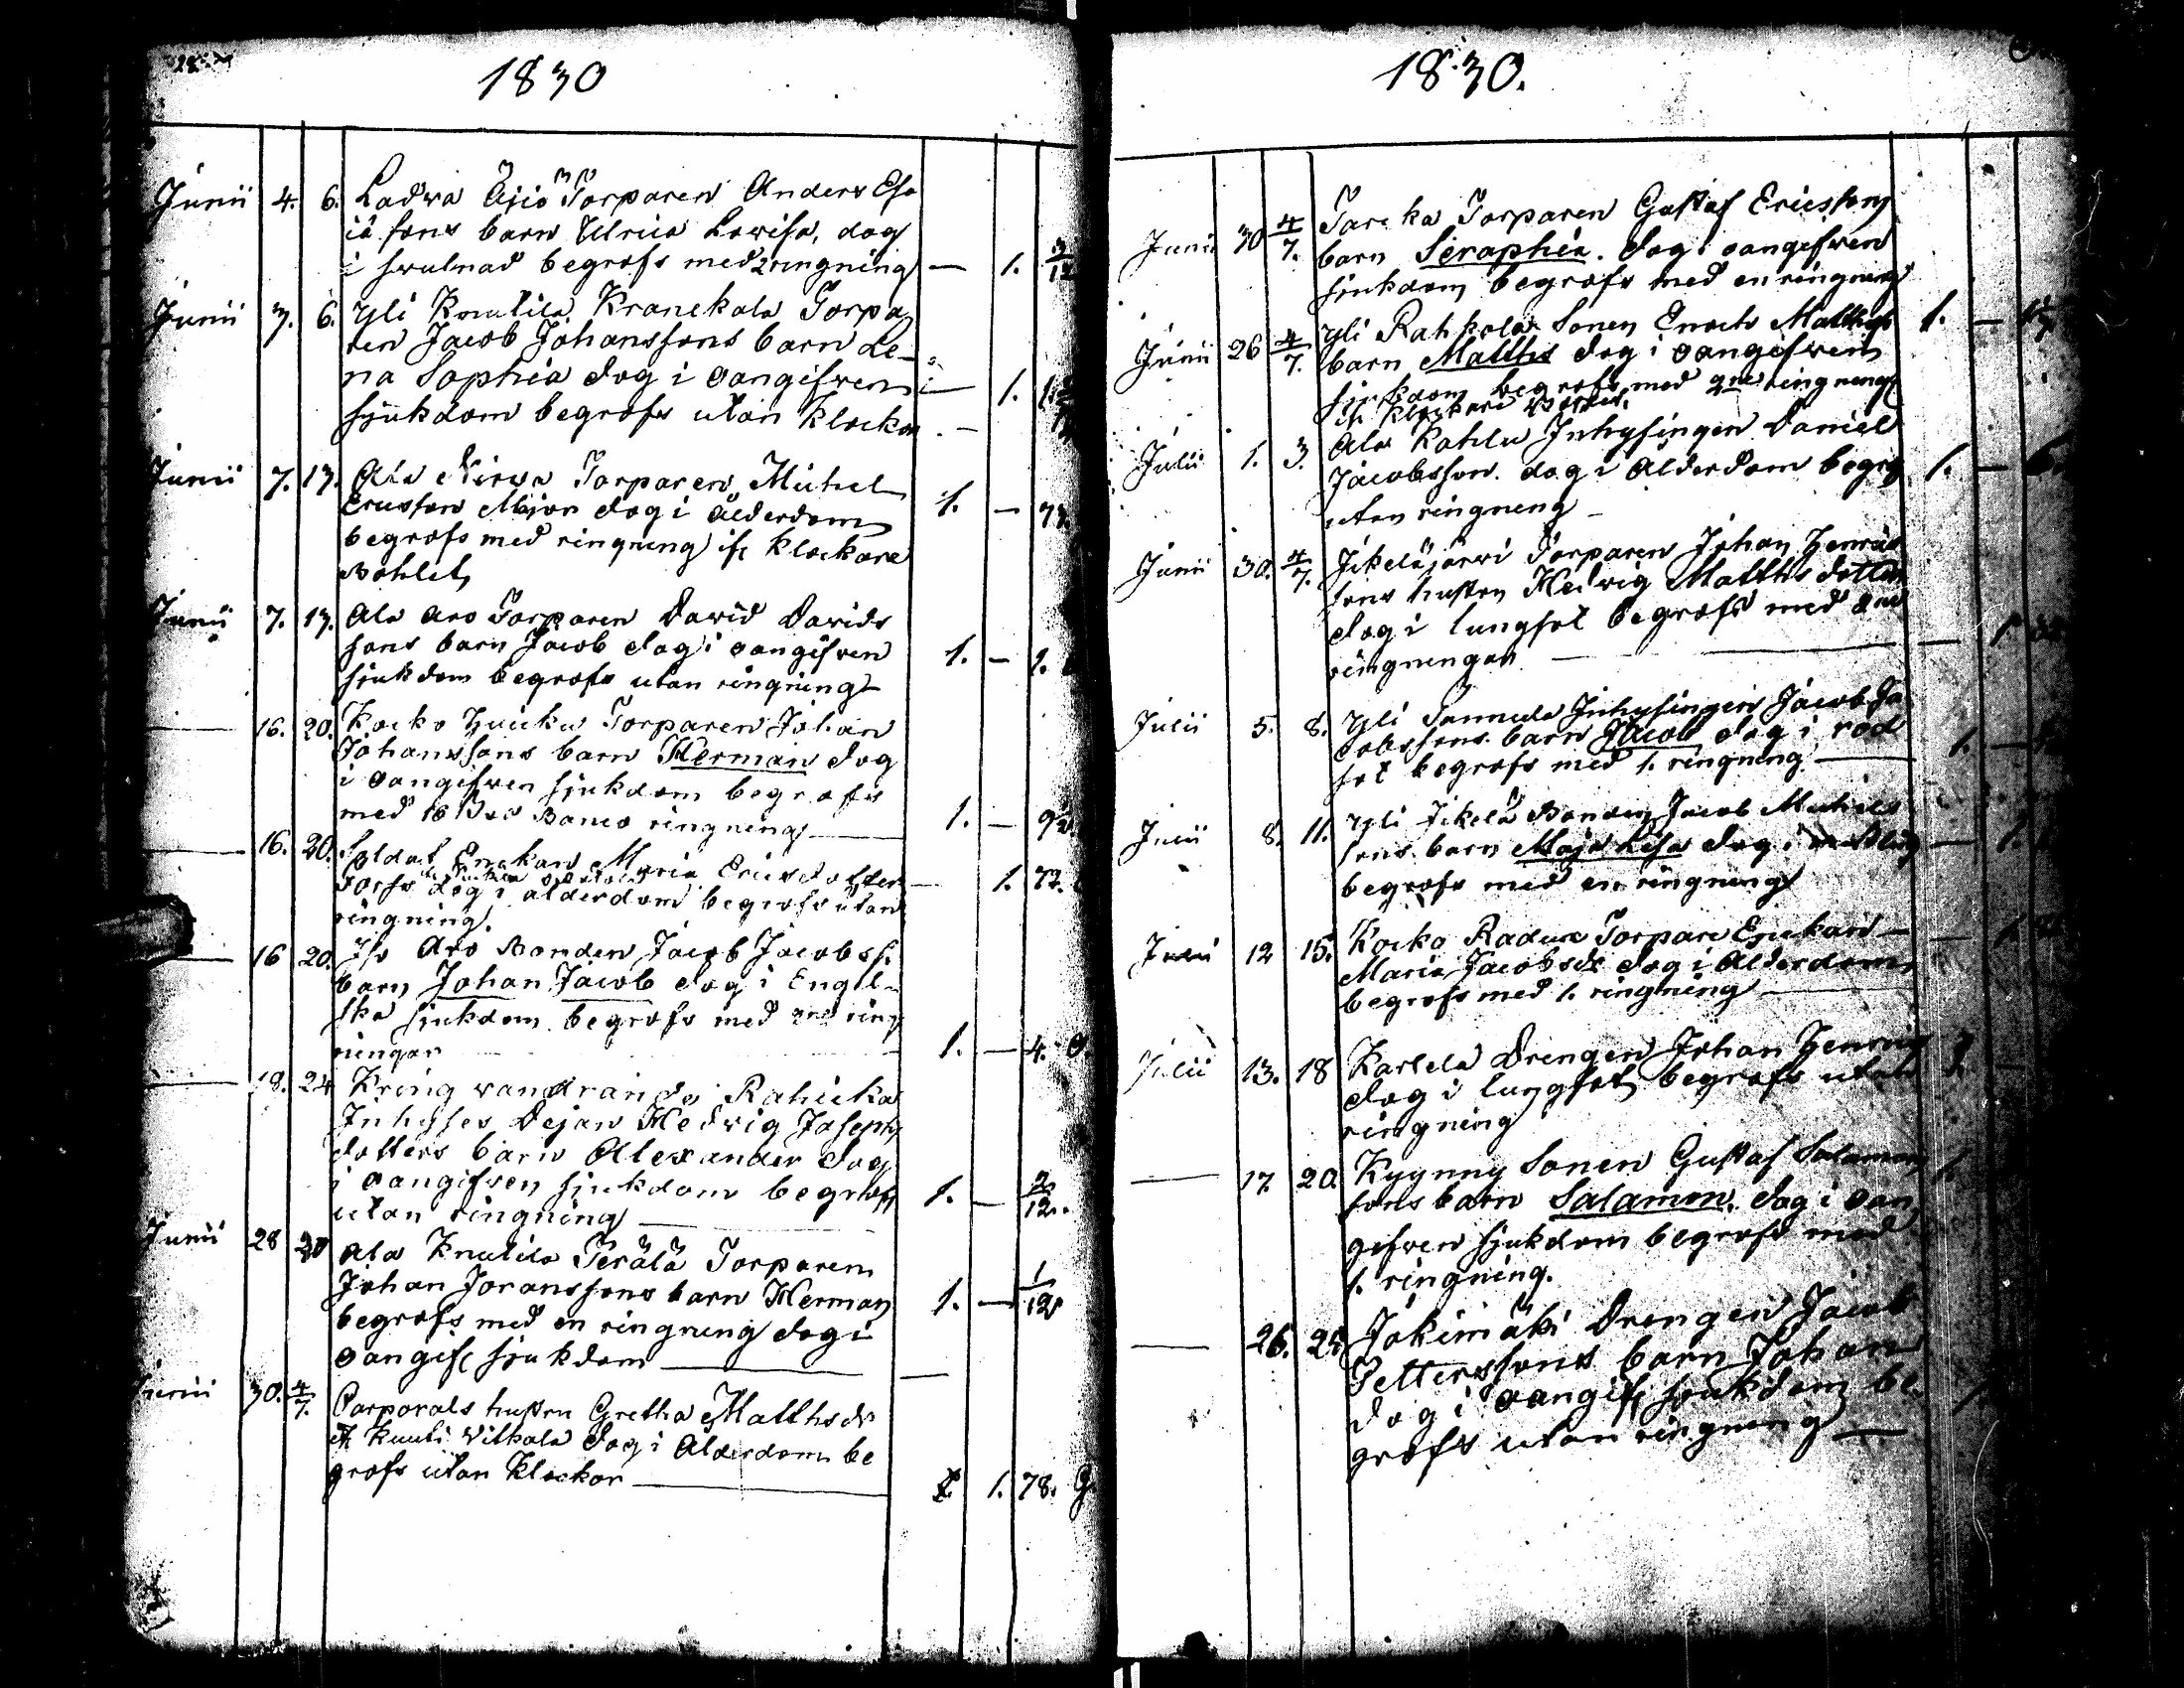 1830
Junii 4. 6. Ladwa Äijö Torparen Anders Esa
iä sons barn Ulrica Lovisa, dog
i swulnad begrofs med 2 ringning — 1. 3/12
Junii 3. 6. Yli Knutila Kranckala Torpa
ren Jacob Johanssons barn Le-
na Sophia dog i oangifwen
sjukdom begrofs utan klockor — 1.
Junii 7. 13. Ala Nirwa Torparen Michel
Ericsson dog i ålderdom 1. —
begrofs med ringning if. klockare
Bohlet
Junii 7. 13. Ala Aro Torparen David Davids
sons barn Jacob dog i oangifven 1. — 1.
sjukdom begrofs utan ringning
— 16. 20. Kocko Torparen Johan
Johanssons barn Herman dog
i oangifwen sjukdom begrofs
med 16 Banco ringning 1. —
— 16. 20. Soldat Enckan Maria Ericsdotter
dog i alderdom begrofs utan — 1. 73.
ringning.
— 16 20. Aro Bonden Jacob Jacobss.
barn Johan Jacob dog i Engel-
ska sjukdom begrofs med 2ne ring
ningar 1. — 4.
— 18. 24 Kring vandrande
Inhyses Pejan Hedvig Josephs
dotters barn Alexander dog
i oangifven sjukdom begrofs 1. — 2/12.
utan ringning
Junii 28 30 Ala Knutila Perälä Torparen
Johan Joranssons barn Herman
begrofs med en ringning dog i 1. — 1/12
oangif. sjukdom
Junii 30. 4/7. Corporals hustru Gretha Matthsdr
Kuuti Vilkala dog i Alderdom be
grofs utan klockor 1. 78.
1830.
Junii 30 4/7. Torparen Gustaf Ericssons
barn Seraphia. dog i oangifwen
sjukdom begrofs med en ringning
Junii 26 4/7. Yli Rahkola Sonen Enochs Matths 1. —
barn Matths dog i oangifwen
sjukdom begrofs med 2ne ringning
if. klockare
Julii 1. 3. Ala Inhysingen Daniel
Jacobsson. dog i Alderdom begrof 1. —
utan ringning
Junii 30. 4/7. Jikeläjärwi Torparen Johan Henrics
sons hustru Hedvig Matths dotter
dog i lungsot begrofs med 2ne
ringningar — 1
Julii 5. 8. Yli Inhysingen Jacob Ja
cobssons barn Jacob dog i röd
sot begrofs med 1. ringning 1. —
Julii 8. 11. Yli Jikelä Bonden Jacob Michels
sons barn Maja Lisa dog i — 1.
begrofs med en ringning
Julii 12 15. Kocko Torpare Enckan — 1
Maria Jacobsdr dog i Alderdom
begrofs med 1. ringning
Julii 13. 18 Karhela Drengen Johan Henric
dog i lungsot begrofs utan
ringning
— 17. 20. Kyynny Sonen Gustaf Salamons
sons barn Salamon. dog i oan
gifven sjukdom begrofs med
1. ringning.
— 26. Jokimäki Drengen Jacob
Petterssons barn Johan
dog i oangif. sjukdom be
grofs utan ringning